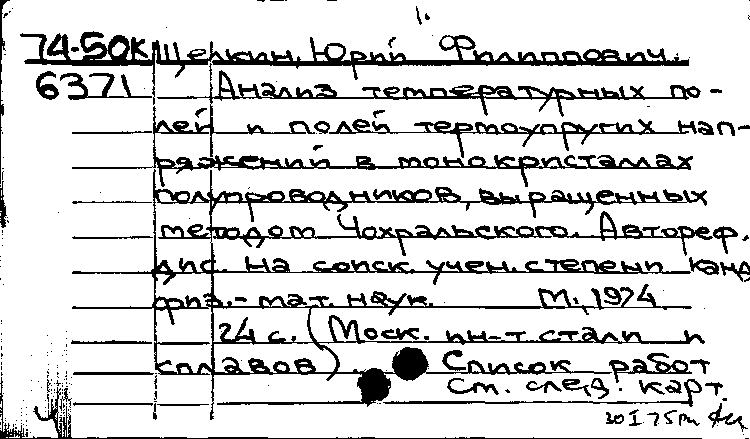 1.
74-50К Щелкин, Юрий Филиппович.
6371 Анализ температурных по-
лей и полей термоупругих нап-
ряжений в монокристаллах
полупроводников, выращенных
методом Чохральского. Автореф.
дис. на соиск. учен. степени канд
физ.-мат. наук. М., 1974.
24 с. (Моск. ин-т стали и
сплавов). Список работ
см. след. карт.
30 I 75